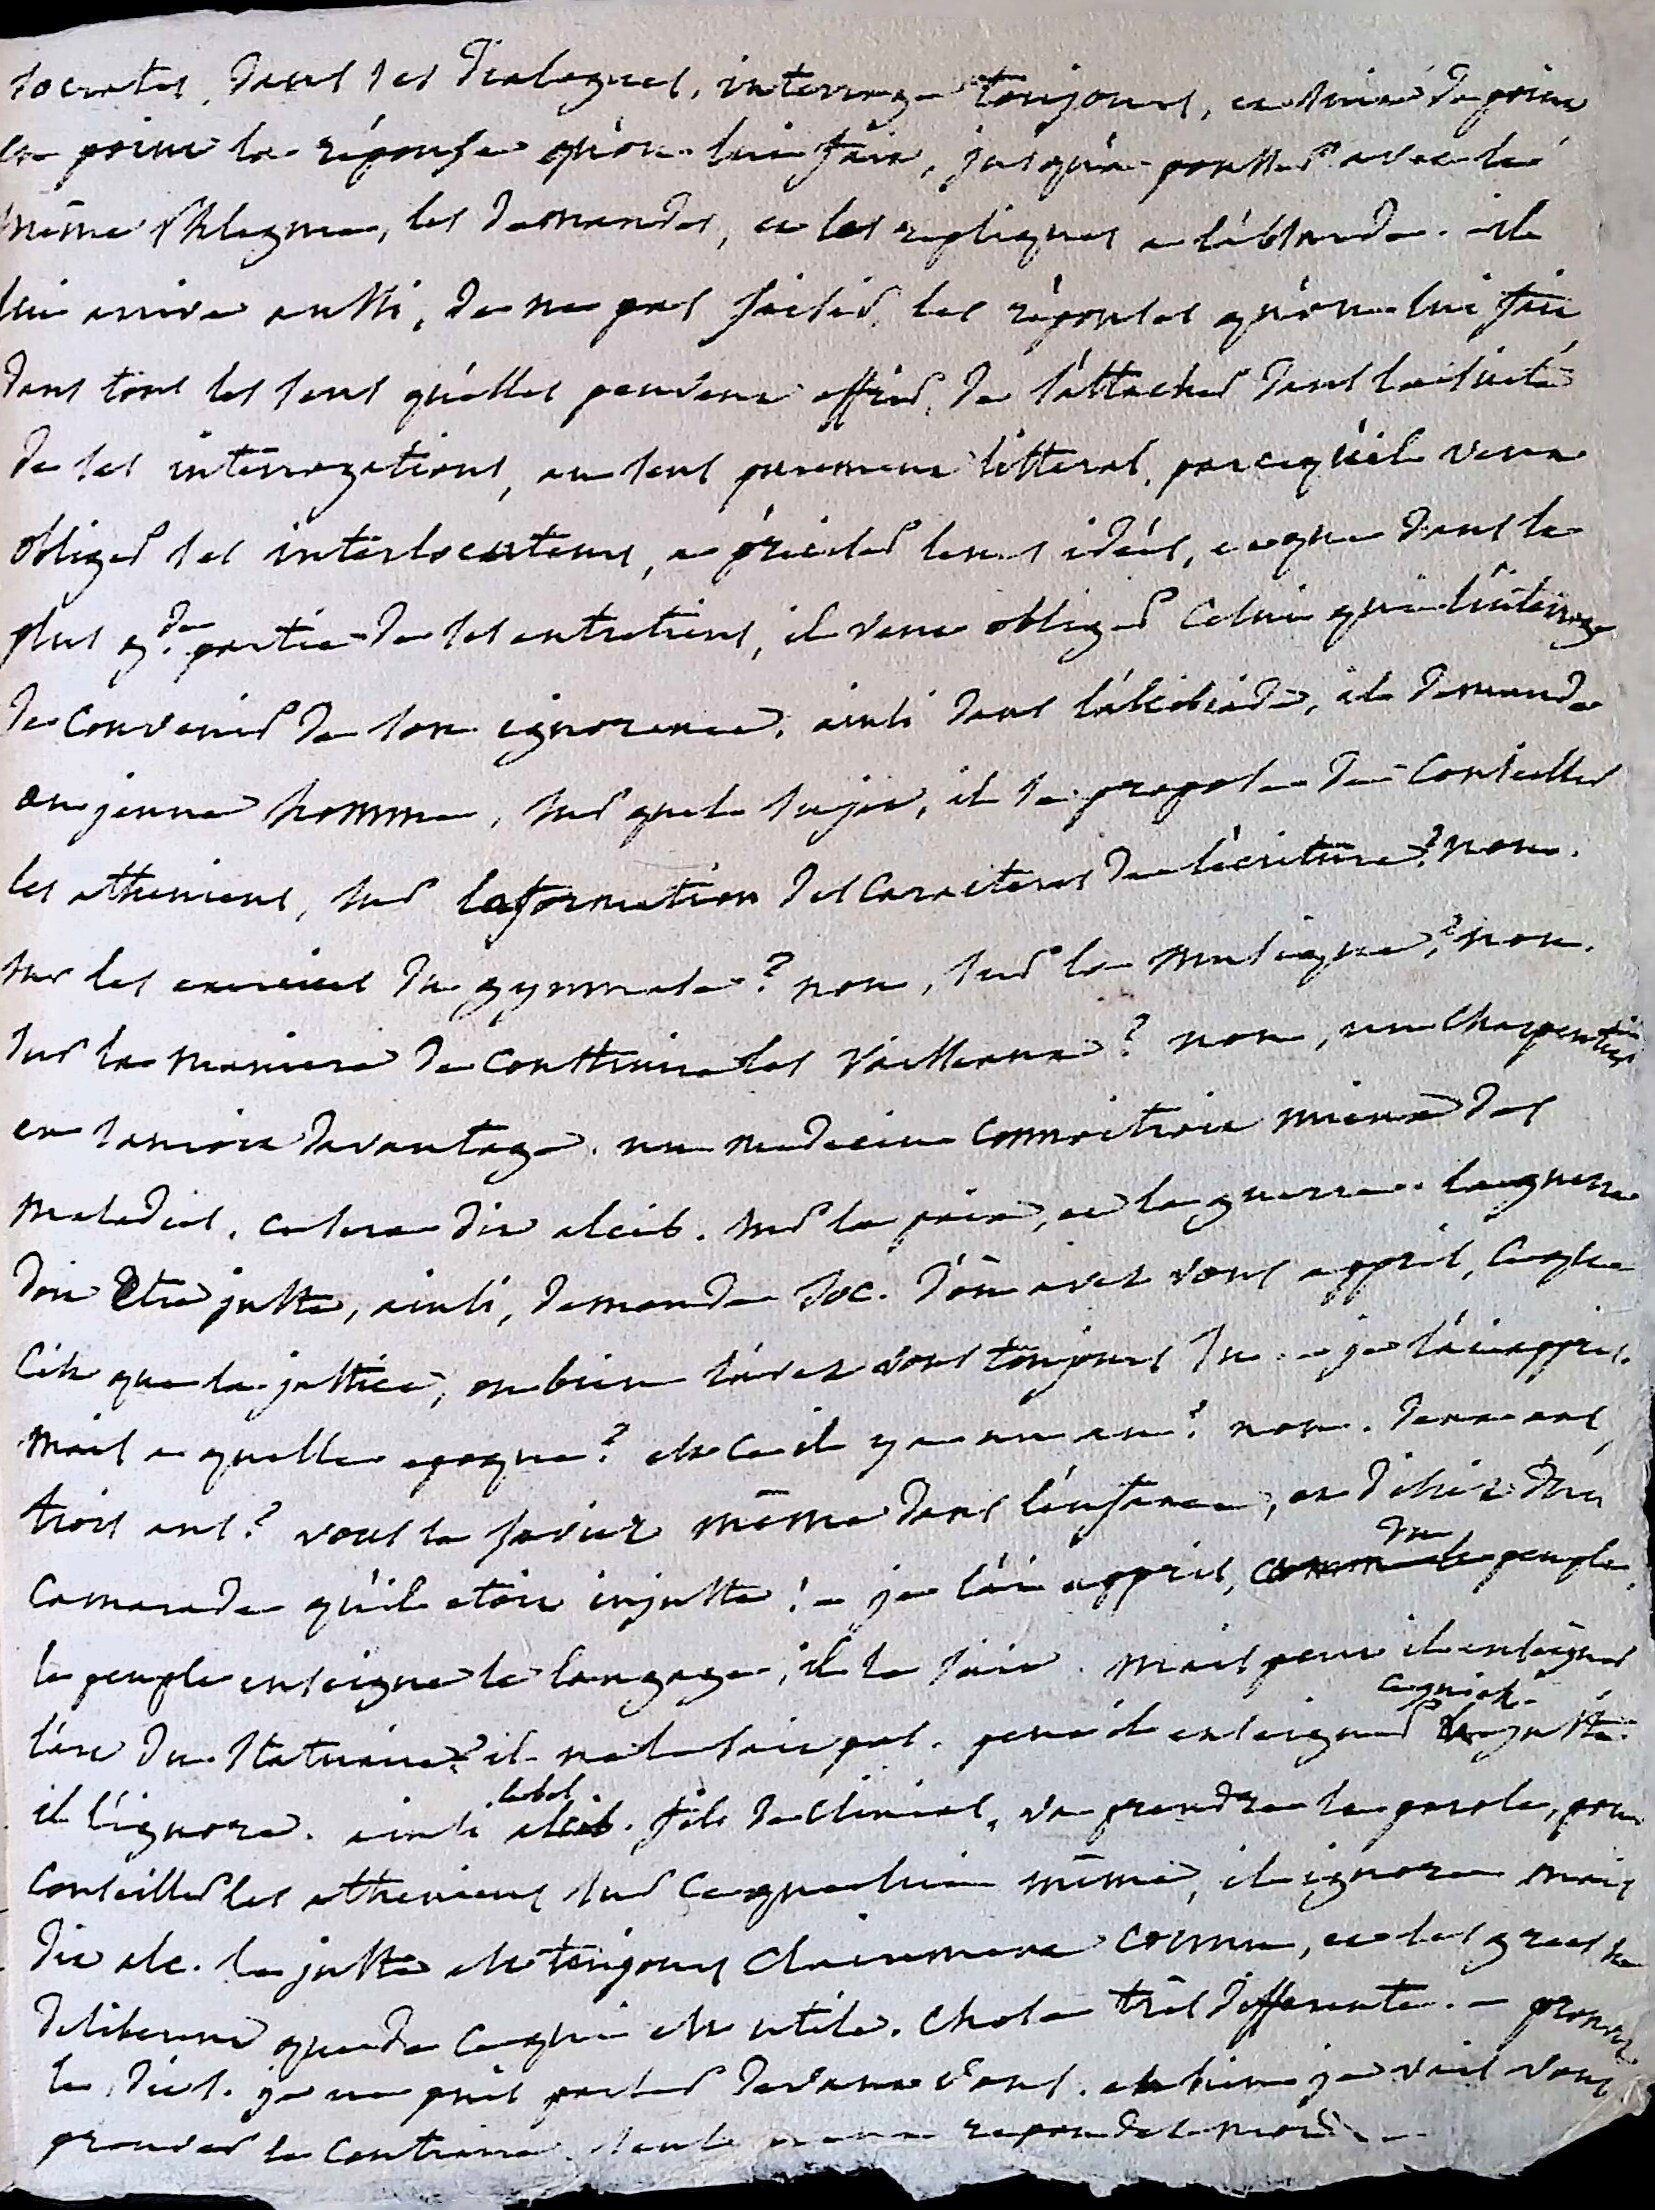 Socrates, dans ses Dialogues, interroge toujours, et suit de point
en point la réponse qu'on lui fait, jusqu'a pousser avec le
même phlegme, les demandes, et les repliques a l'absurde. il
lui arrive aussi, de ne pas saisir, les réponses qu'on lui fait
dans tous les sens qu'elles peuvent offrir, de s'attacher dans la suite
de ses interrogations, au sens purement litteral, parcequ'il veut
obliger ses interlocuteurs, a préciser leurs idées, et que dans la
plus g.de partie de ses entretiens, il veut obliger celui qui l'interroge
de convenir de son ignorance. ainsi dans l'alcibiade, il demande
au jeune homme, sur quel sujet, il se propose de conseiller
les atheniens, sur la formation des caracteres de l'ecriture? non.
sur les exercices du gymnase? non, sur la musique? non.
sur la maniere de construire les vaisseaux? non, un charpentier
en sauroit davantage. un medecin connoitroit mieux des
maladies. ce sera dit alcib. sur la paix, et la guerre. la guerre
doit etre juste, ainsi, demande Soc. d'où avez vous appris, ce que
c'est que la justice, ou bien l'avez vous toujours su. - je l'ai appris.
mais a quelle epoque? est ce il y a un an? non. deux ans,
trois ans? vous le saviez même dans l'enfance, et disiez d'un
camarade qu'il etoit injuste! - je l'ai appris, du peuple,
le peuple enseigne le langage, il le sait. mais peut il enseigner
l'art du statuaire? il ne le sait pas. peut il enseigner ce qui est juste
il l'ignore. ainsi le bel alcib. fils de clinias, va prendre la parole, pour
conseiller les atheniens sur ce que lui même, il ignore mais
dit alc. le juste est toujours clairement connu, et les grecs ne
deliberent que de ce qui est utile. chose très differente. - prouvez
le, dis. je ne puis parler devant vous. eh bien je vais vous
prouver le contraire